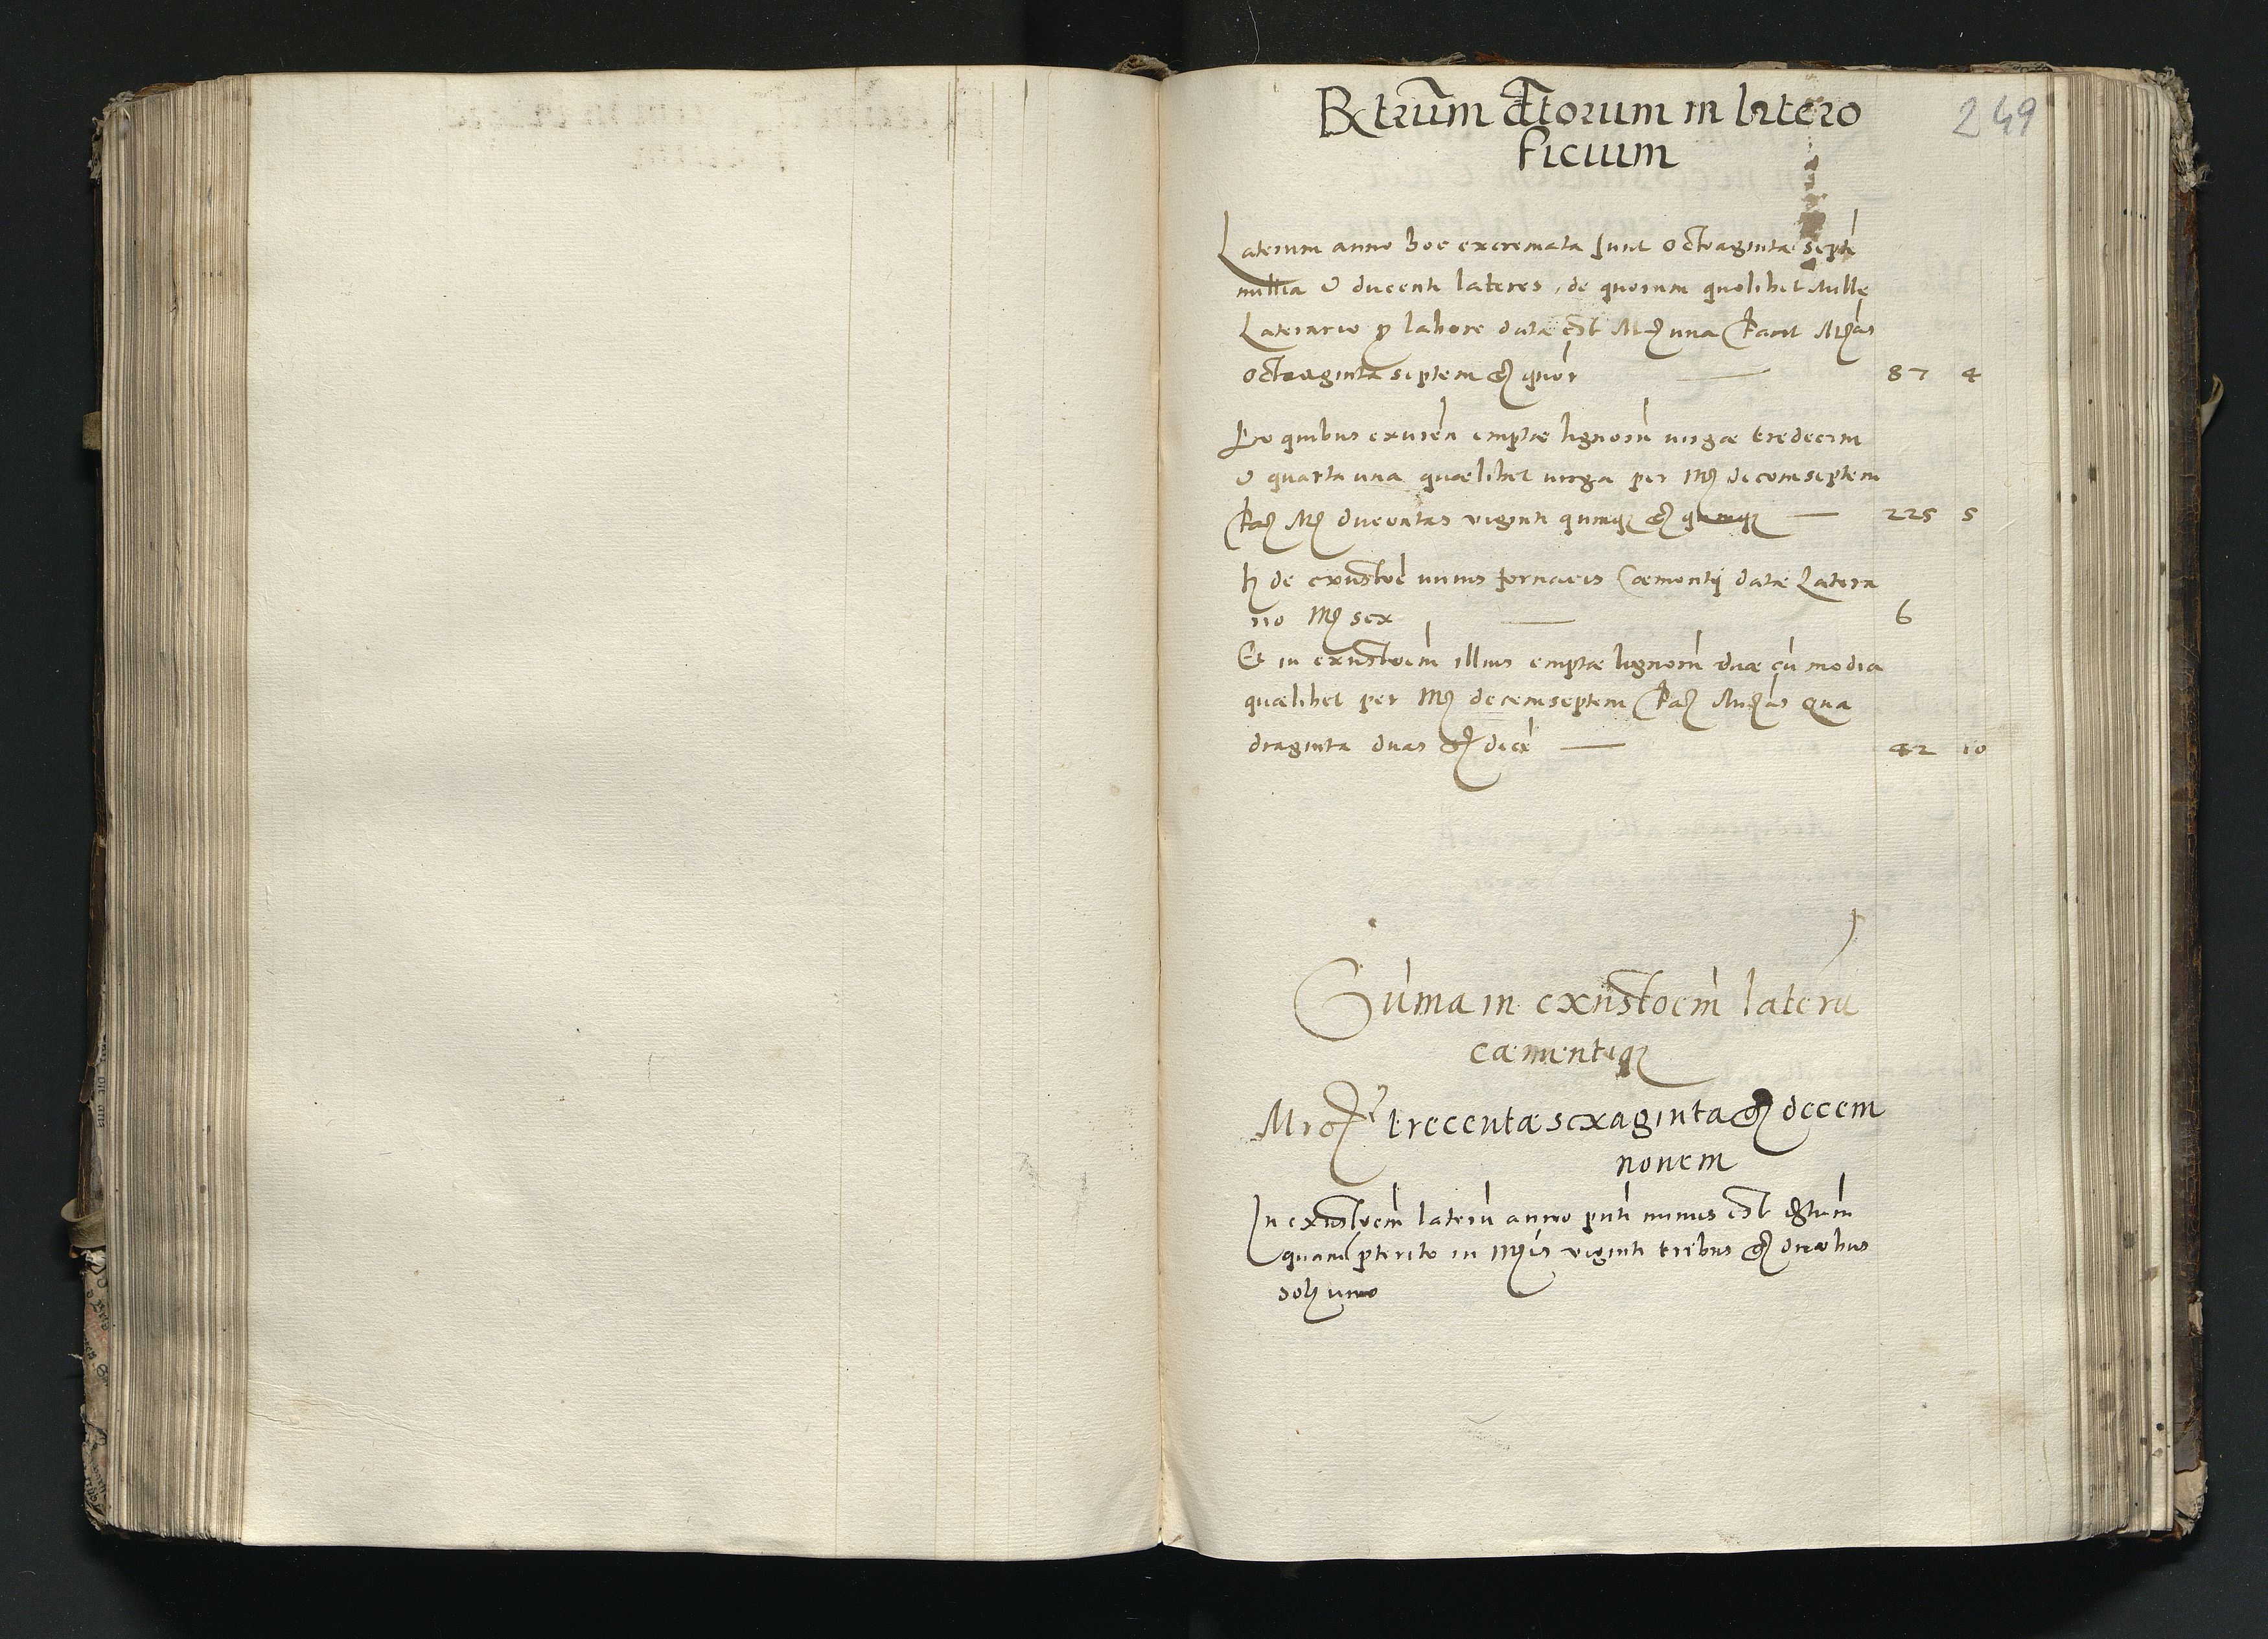 Extrm̄ dtōrum in latero
ficium
249
Laterum anno hoc excremata sunt octoaginta septē
millia & ducenti lateres, de quorum quolibet Mille
Laterario p labore data est Mr una facit Mras
octoaginta septem gr quor — 87 4
Pro quibus exuren emptæ lignorū virgæ tredecim
& quarta una quælibet virga per Mr decemseptem
fac Mr ducentas viginti quinqȝ gr quinqȝ — 225 5
It de exustoē unius fornacis Cæmenti datæ Latera
rio Mr sex — 6
Et in exustoem̄ illius emptæ lignorū duæ cū media
quælibet per Mr decemseptem fac Mrcas qua
draginta duas gr decē — 42 10
Sum̄a in exustoem̄ laterū
cæmentiqȝ
Mrcæ trecentæ sexaginta gr decem
novem
In exustoem̄ laterū anno pnti minus est extm̄
quam pterito in Mris viginti tribus gr duobus
sol uno